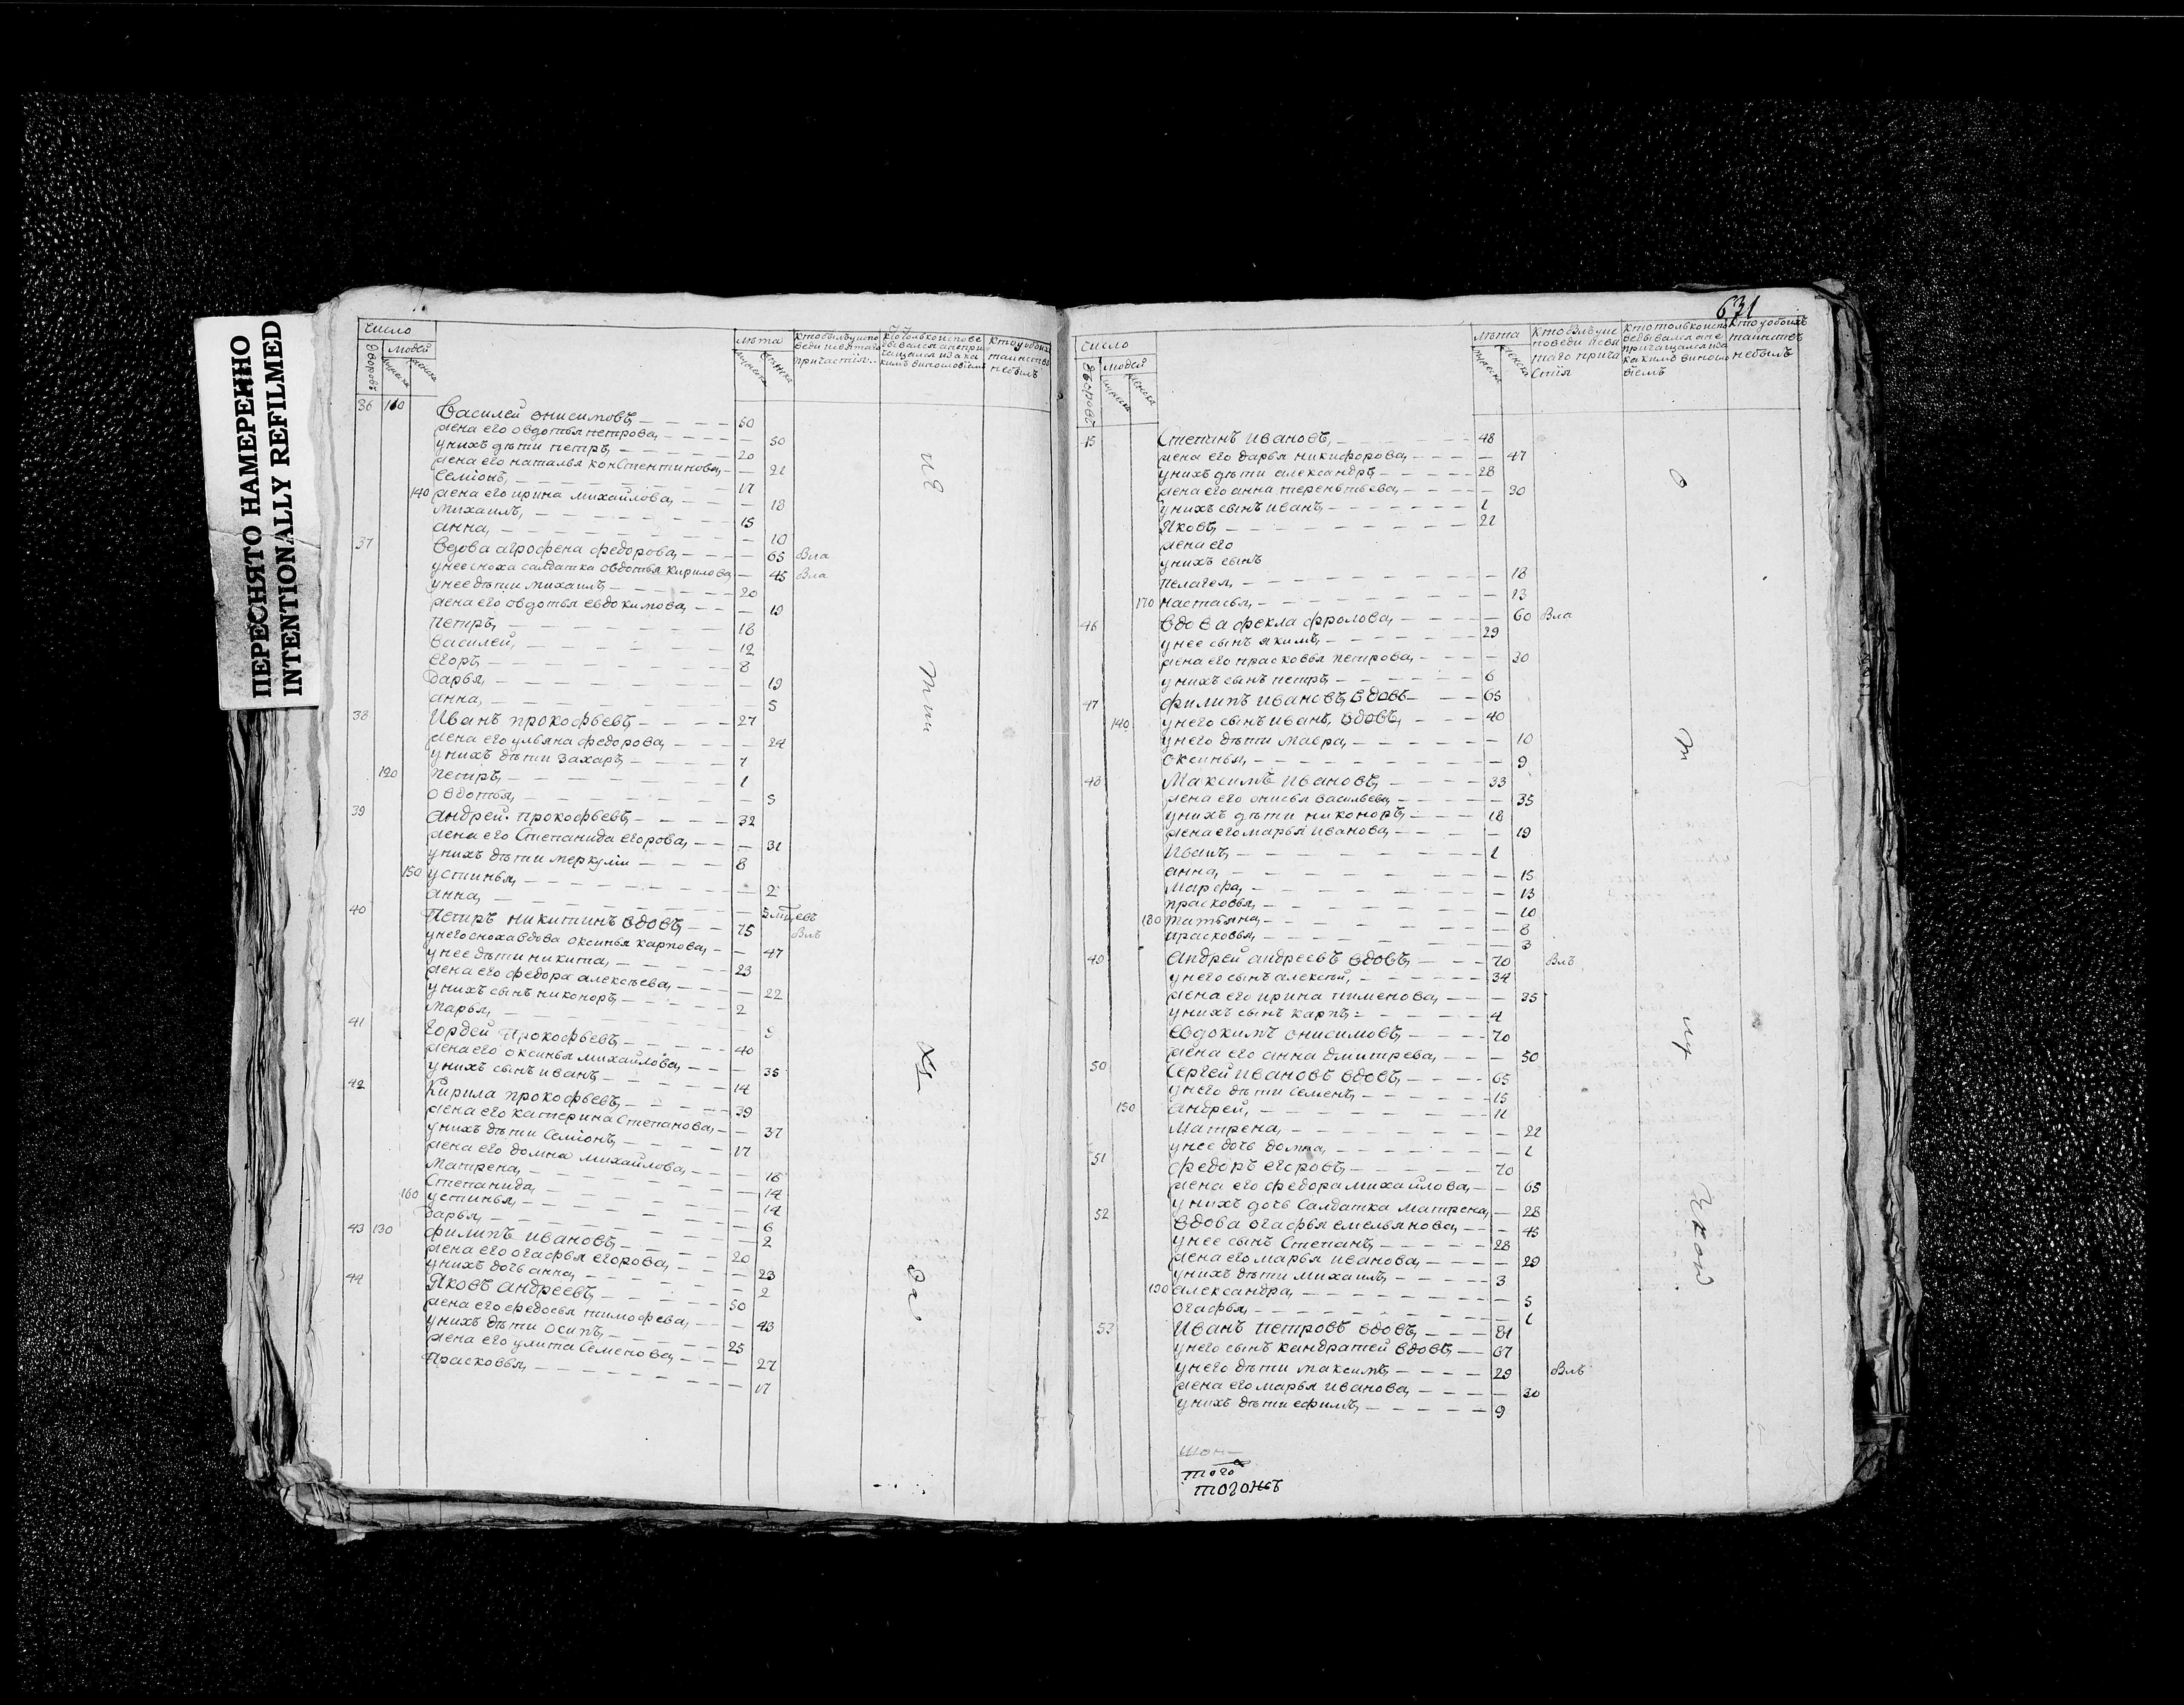 ПЕРЕСНЯТО НАМЕРЕННО
INTENTIONALLY REFILMED
число
Дворовъ
людей
мужеска
женска
лѣта
мужеска
женска
кто былъ у испо
веди и святаго
причастія
кто только испове
дывался а не при
чащался и за ка
кимъ винословіемъ
кто у обоихъ
таинствъ
не былъ
36 110 Василей онисимовъ 50
жена его овдотья петрова 50
у нихъ дѣти петръ 20
жена его наталья констентинова 21
Семіонъ 17
140 жена его ирина михайлова 18
михаилъ 15
анна 10
37 Вдова агрофена федорова 65 Бла
у нее сноха салдатка овдотья кирилова 45 Бла
у нее дѣти михаилъ 20
жена его овдотья евдокимова 19
Петръ 18
василей 12
егоръ 8
дарья 19
анна 5
38 Иванъ прокофьевъ 27
жена его ульяна федорова 24
у нихъ дѣти захаръ 7
120 петръ 1
овдотья 5
39 андрей прокофьевъ 32
жена его Степанида егорова 31
у нихъ дѣти меркулій 8
150 устинья 2
анна 5 мцевъ
40 Петръ никитинъ вдовъ 75 Влъ
у него сноха вдова оксинья карпова 47
у нее дѣти никита 23
жена его федора алексѣева 22
у нихъ сынъ никоноръ 2
Марья
41 Гордей прокофьевъ 40
жена его оксинья михайлова 35
у нихъ сынъ иванъ 14
42 Кирила прокофьевъ 39
жена его катерина Степанова 37
у нихъ дѣти Семіонъ 17
жена его домна михайлова 18
Матрена 14
Степанида 14
160 устинья 6
Дарья 2
43 130 филипъ ивановъ 20
жена его огафья егорова 23
у нихъ дочь анна 2
44 Яковъ андреевъ 50
жена его федосья тимофева 43
у нихъ дѣти осипъ 25
жена его улита Семенова 27
Прасковья 17
631
число
Дворовъ
людей
мужеска
женска
лѣта
мужеска
женска
кто былъ у ис
поведи и свя
таго прича
стія
кто только испо
ведывался а не
причащался и за
какимъ виносло
віемъ
кто у обоихъ
таинствъ
не былъ
45 Степанъ ивановъ 48
жена его дарья никифорова 47
у нихъ дѣти александръ 28
жена его анна терентьева 30
у нихъ сынъ иванъ 1
Яковъ 21
жена его
у нихъ сынъ
пелагея 18
170 настасья 13
46 вдова фекла фролова 60 Бла
у нее сынъ якимъ 29
жена его прасковья петрова 30
у нихъ сынъ петръ 6
47 филипъ ивановъ вдовъ 65
140 у него сынъ иванъ вдовъ 40
у него дѣти мавра 10
оксинья 9
48 Максимъ ивановъ 33
жена его онисья васильева 35
у нихъ дѣти никоноръ 18
жена его марья иванова 19
Иванъ 1
анна 15
Марфа 13
прасковья 10
180 татьяна 8
прасковья 3
49 андрей андреевъ вдовъ 70 Влъ
у него сынъ алексѣй 34
жена его ирина пименова 35
у нихъ сынъ карпъ 4
Евдокимъ онисимовъ 70
жена его анна дмитрева 50
50 Сергей ивановъ вдовъ 65
у него дѣти Семенъ 15
150 андрей 11
Матрена 22
у нее дочь домна 1
51 федоръ егоровъ 70
жена его федора михайлова 65
у нихъ дочь Салдатка матрена 28
52 вдова огафья емельянова 45
у нее сынъ Степанъ 28
жена его марья иванова 29
у нихъ дѣти михаилъ 3
190 александра 5
огафья 1
53 Иванъ петровъ вдовъ 81
у него сынъ кандратей вдовъ 67
у него дѣти максимъ 29 Влъ
жена его марья иванова 30
у нихъ дѣти ефимъ 9
того
тогожъ